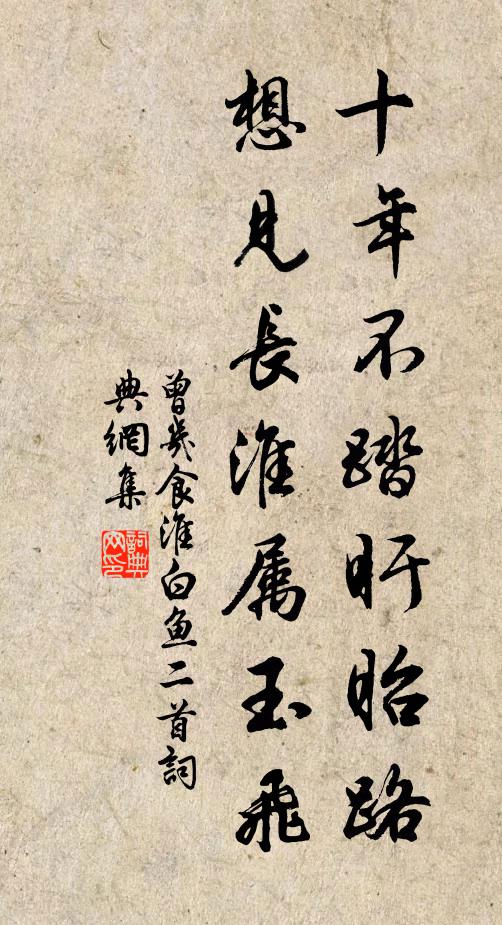 十年不踏盱眙路
想見長淮属玉飛
曾幾食淮白鱼二首詞
典網集
詞典網印